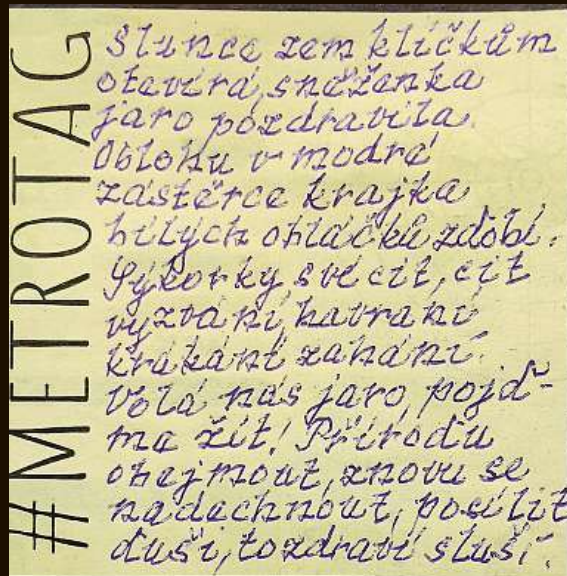 #METROTAG
Slunce zem klíčkům
otevírá, sněženka
jaro pozdravila.
Oblohu v modré
zástěrce krajka
bílých obláčků zdobí.
Sýkorky své cit, cit
vyzvání, havraní
krákání zahání.
Volá nás jaro, pojď-
me žít! Přírodu
obejmout, znovu se
nadechnout, posílit
duši, to zdraví sluší.